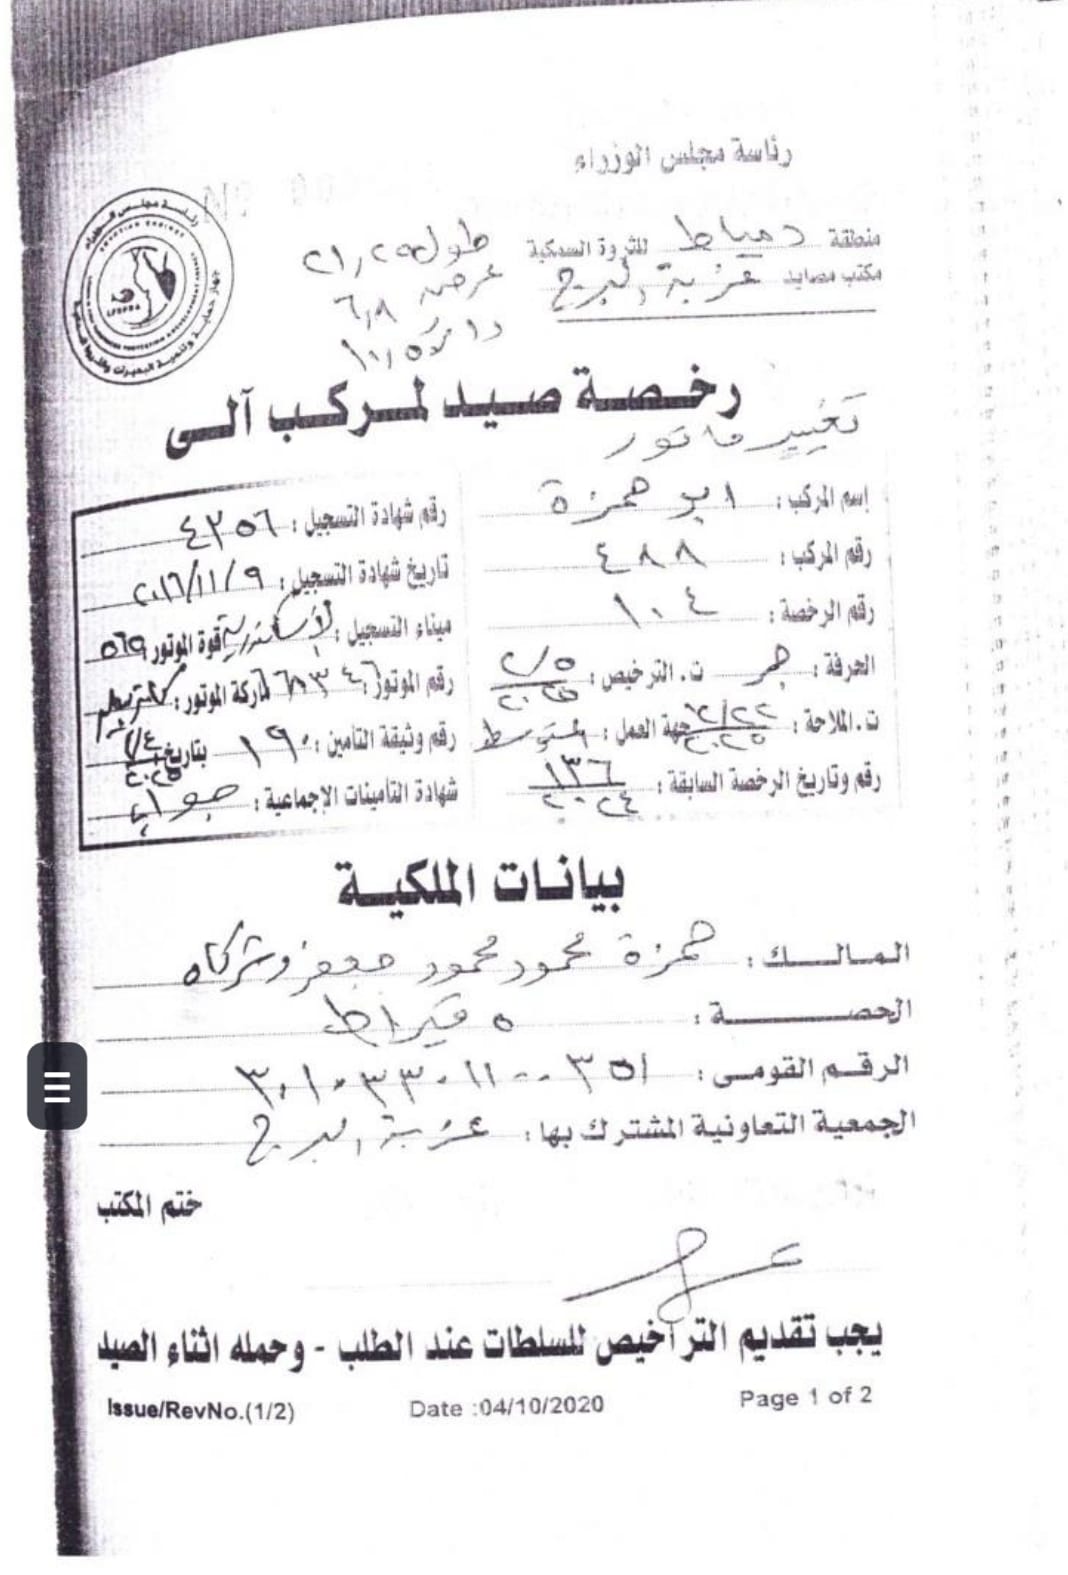 رئاسة مجلس الوزراء
منطقة دمياط للثروة السمكية
مكتب مصايد عزبة البرج
طول ٢١,٢٥
عرض ٦,٨
رخصة صيد لمركب آلى
تغيير ماتور
إسم المركب : ابو حمزة
رقم المركب : ٤٨٨
رقم الرخصة : ١٠٤
الحرفة : جر ت. الترخيص : ٢/٥
ت. الملاحة : ٢٠٢٥ جهة العمل : المتوسط
رقم وتاريخ الرخصة السابقة : ١٣٦ / ٢٠٢٤
رقم شهادة التسجيل : ٤٢٥٦
تاريخ شهادة التسجيل : ٢٠١٦/١١/٩
ميناء التسجيل : الأسكندرية قوة الموتور : ٥٦٥
رقم الموتور : ماركة الموتور :
رقم وثيقة التأمين : ١٩٠ بتاريخ ٢٠٢٥
شهادة التأمينات الإجماعية :
بيانات الملكية
المالك : حمزة محمود محمود جعفر وشركاه
الحصة : ٥ قيراط
الرقم القومى : ٣٠١٠٣٣٠١١٠٠٣٥١
الجمعية التعاونية المشترك بها : عزبة البرج
ختم المكتب
يجب تقديم التراخيص للسلطات عند الطلب - وحمله اثناء الصيد
Issue/RevNo.(1/2) Date :04/10/2020 Page 1 of 2